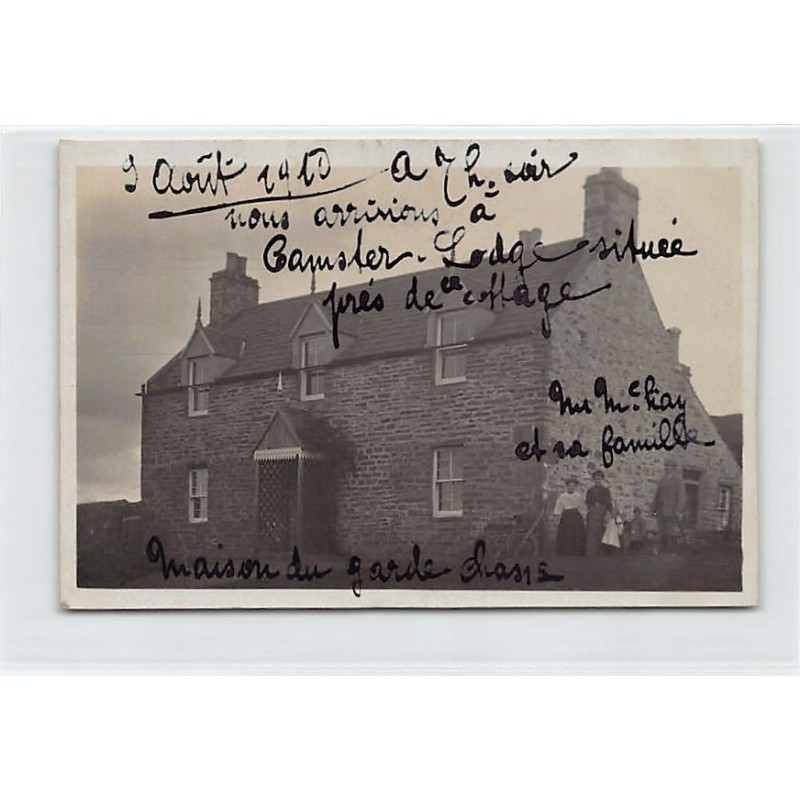 9 Août 1910 A 7h. soir
nous arrivions à
Camster-Lodge située
près de ce cottage
Mr McKay
et sa famille
Maison du garde chasse